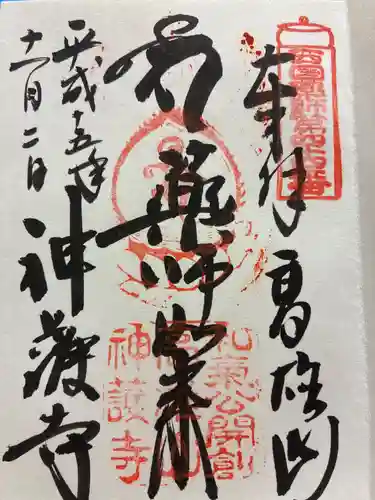 奉拝 高雄山
薬師如来
平成十五年
十一月二日
神護寺
西国薬師第四十四番
弘法公開創
神護寺